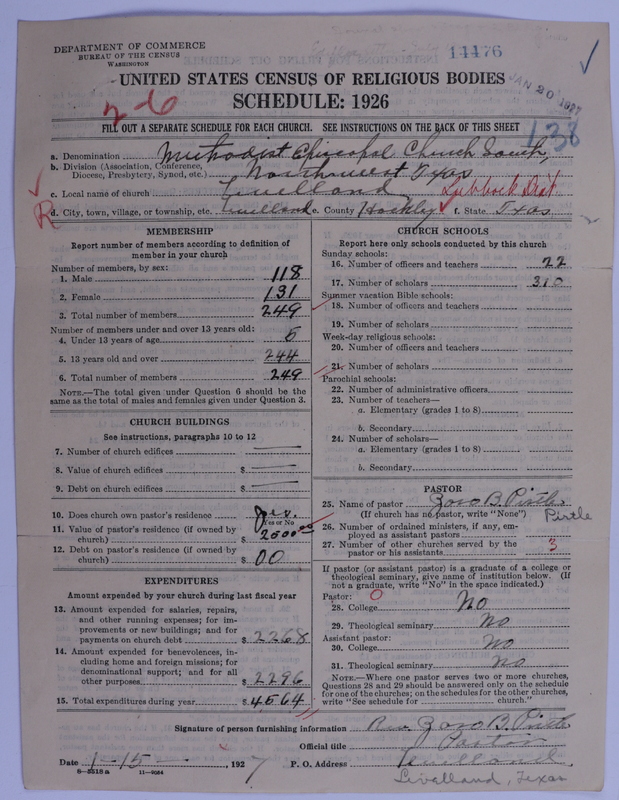 DEPARTMENT OF COMMERCE
BUREAU OF THE CENSUS
WASHINGTON
14476
UNITED STATES CENSUS OF RELIGIOUS BODIES
SCHEDULE: 1926
JAN 20 1927
2-6
138
FILL OUT A SEPARATE SCHEDULE FOR EACH CHURCH. SEE INSTRUCTIONS ON THE BACK OF THIS SHEET
a. Denomination Methodist Episcopal Church South,
b. Division (Association, Conference, Diocese, Presbytery, Synod, etc.) Northwest Texas
c. Local name of church Levelland Lubbock Dist.
R d. City, town, village, or township, etc. Levelland e. County Hockley f. State Texas
MEMBERSHIP
Report number of members according to definition of
member in your church
Number of members, by sex:
1. Male 118
2. Female 131
3. Total number of members 249
Number of members under and over 13 years old:
4. Under 13 years of age 5
5. 13 years old and over 244
6. Total number of members 249
NOTE.—The total given under Question 6 should be
same as the total of males and females given under Question 3.
CHURCH BUILDINGS
See instructions, paragraphs 10 to 12
7. Number of church edifices
8. Value of church edifices $
9. Debt on church edifices $
10. Does church own pastor's residence Yes.
Yes or No
11. Value of pastor's residence (if owned by
church) $ 2500 00
12. Debt on pastor's residence (if owned by
church) $ 00
EXPENDITURES
Amount expended by your church during last fiscal year
13. Amount expended for salaries, repairs,
and other running expenses; for im-
provements or new buildings; and for
payments on church debt $ 2268
14. Amount expended for benevolences, in-
cluding home and foreign missions; for
denominational support; and for all
other purposes $ 2296
15. Total expenditures during year $ 4564
CHURCH SCHOOLS
Report here only schools conducted by this church
Sunday schools:
16. Number of officers and teachers 22
17. Number of scholars 310
Summer vacation Bible schools:
18. Number of officers and teachers
19. Number of scholars
Week-day religious schools:
20. Number of officers and teachers
21. Number of scholars
Parochial schools:
22. Number of administrative officers
23. Number of teachers—
a. Elementary (grades 1 to 8)
b. Secondary
24. Number of scholars—
a. Elementary (grades 1 to 8)
b. Secondary
PASTOR
25. Name of pastor Zoro B. Pirtle
(If church has no pastor, write "None") Pirtle
26. Number of ordained ministers, if any, em-
ployed as assistant pastors
27. Number of other churches served by the
pastor or his assistants 3
If pastor (or assistant pastor) is a graduate of a college or
theological seminary, give name of institution below. (If
not a graduate, write "No" in the space indicated.)
Pastor: O
28. College No
29. Theological seminary No
Assistant pastor:
30. College No
31. Theological seminary No
NOTE.—Where one pastor serves two or more churches,
Questions 28 and 29 should be answered only on the schedule
for one of the churches; on the schedules for the other churches,
write "See schedule for church."
Signature of person furnishing information Rev. Zoro B. Pirtle
Official title Pastor
Date 1-15- , 1927 P. O. Address Levelland
8-5518a 11-9054
Levelland, Texas